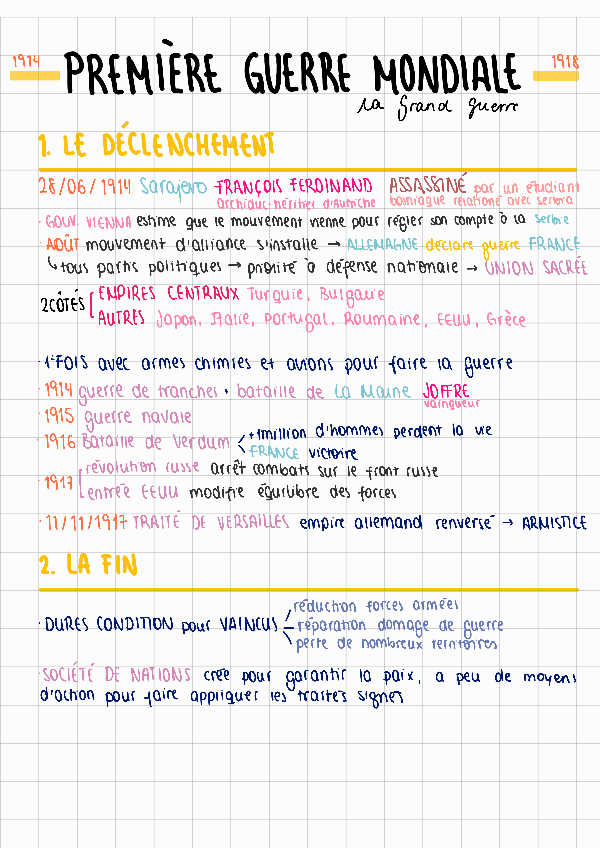 1914 PREMIÈRE GUERRE MONDIALE 1918
la Grand guerre
1. LE DÉCLENCHEMENT
28/06/1914 Sarajevo FRANÇOIS FERDINAND ASSASSINÉ par un étudiant
archiduc-héritier d'autriche relationé avec serbia
· GOUV. VIENNA estime que le mouvement vienne pour régler son compte à la serbie
· AOÛT mouvement d'alliance s'installe → ALLEMAGNE déclare guerre FRANCE
↳ tous partis politiques → priorité à défense nationale → UNION SACRÉE
2 CÔTÉS EMPIRES CENTRAUX Turquie, Bulgarie
AUTRES Japon, Italie, Portugal, Roumaine, EEUU, Grèce
· 1ºFOIS avec armes chimies et avions pour faire la guerre
· 1914 guerre de tranches · bataille de La Maune JOFFRE
vainqueur
· 1915 guerre navale
· 1916 Bataille de Verdum +1million d'hommes perdent la vie
FRANCE victoire
· 1917 révolution russe arrêt combats sur le front russe
entrée EEUU modifie équilibre des forces
· 11/11/1917 TRAITÉ DE VERSAILLES empire allemand renversé → ARMISTICE
2. LA FIN
· DURES CONDITION pour VAINCUS réduction forces armées
réparation domage de guerre
perte de nombreux territoires
· SOCIÉTÉ DE NATIONS crée pour garantir la paix, a peu de moyens
d'action pour faire appliquer les traités signés